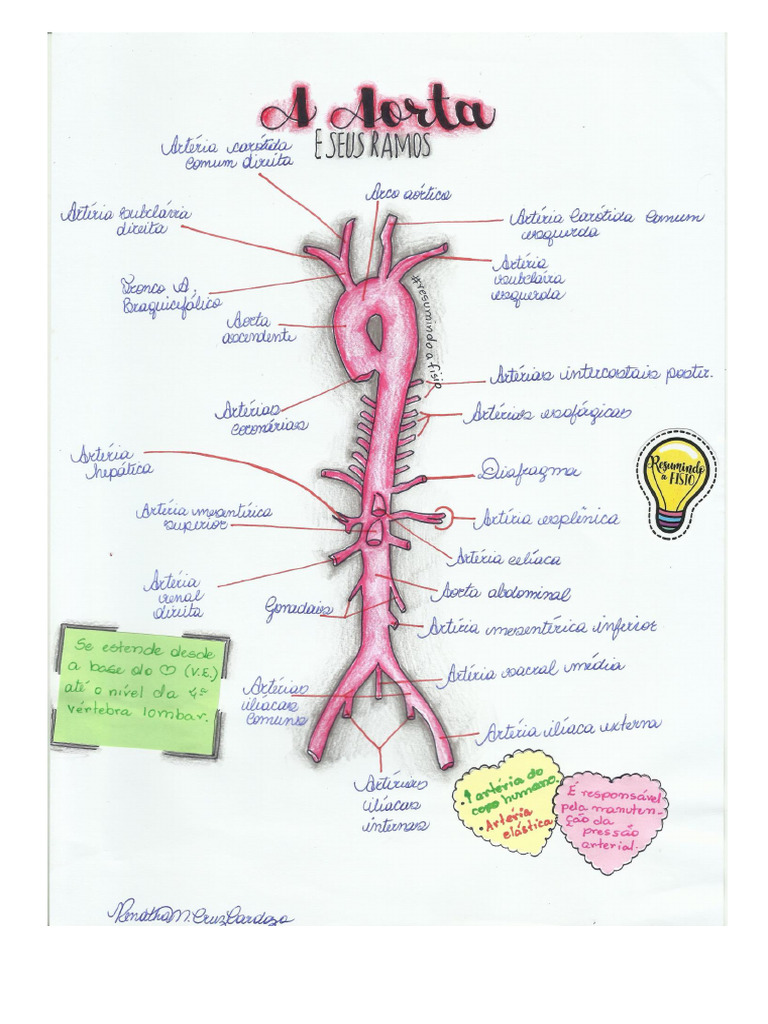 A Aorta
E SEUS RAMOS
Artéria carótida
comum direita
Arco aórtico
Artéria subclávia
direita
Artéria Carótida Comum
esquerda
Artéria
subclaíra
esquerda
Tronco A.
Braquicifálico
#resumindo a fisio
Aorta
ascendente
Artérias intercostais poster.
Artérias
coronárias
Artérias esofágicas
Artéria
hepática
Diafragma
Resumindo
a FISIO
Artéria mesentérica
superior
Artéria esplênica
Artéria celíaca
Artéria
renal
direita
Gonadais
Aorta abdominal
Artéria mesentérica inferior
Se estende desde
a base do ♡ (V.E.)
até o nível da 4ª
vértebra lombar.
Artéria sacral média
Artérias
ilíacas
comuns
Artéria ilíaca externa
Artérias
ilíacas
internas
•↑ artéria do
copo humano.
• Artéria
elástica
É responsável
pela manuten-
ção da
pressão
arterial.
Renatha M. Cruz Cardozo